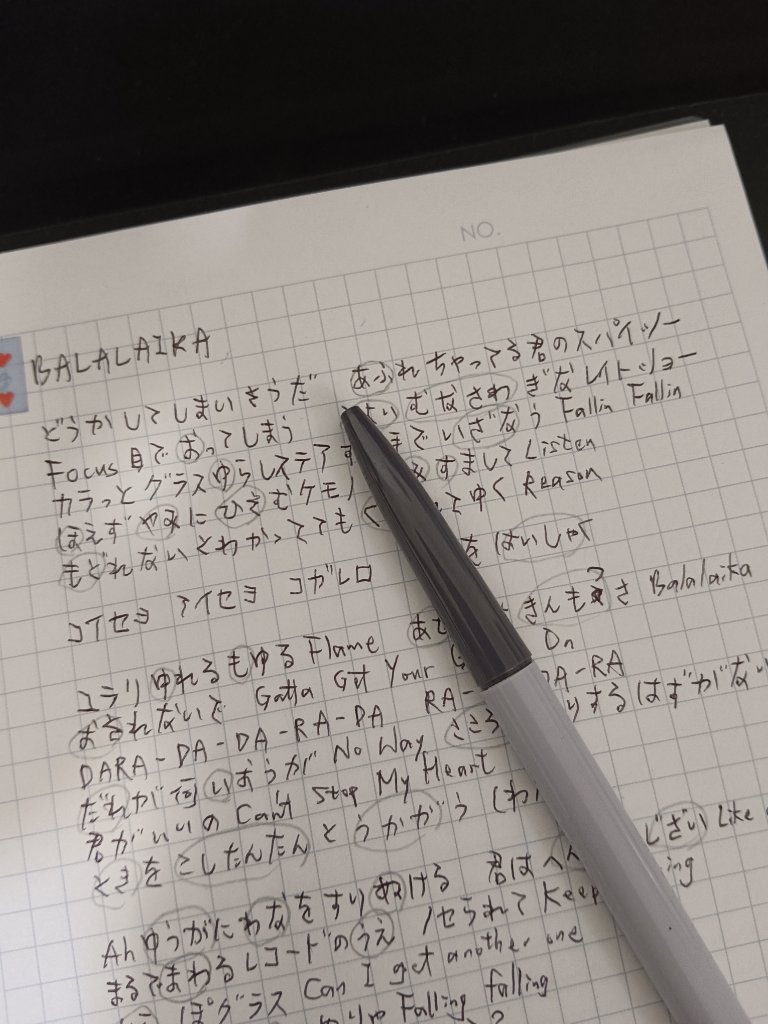 NO.
BALALAIKA
どうかしてしまいそうだ あふれちゃってる君のスパイシー
Focus 目でおってしまう むなさわぎなレイトショー
カラっとグラスゆらしステア までいざなう Fallin Fallin
ほえずやみにひそむケモノ すまして Listen
もどれないとわかっててもく てゆく Reason
コイセヨ アイセヨ コガレロ を はいしゃく
ユラリゆれるもゆる Flame あて きんも さ Balalaika
おそれないで Gotta Get Your On
DARA-DA-DA-RA-DA RA- DA-RA
だれが何いおうが No Way こころ りするはずがない
君がいいの Can't Stop My Heart
ときをこしたんたんとうかがう (わ
Ah ゆうがにわなをすりぬける 君はへん じざい Like
まるでまわるレコードのうえ ノセられて Keep ing
ぽグラス Can I get another one
Falling falling